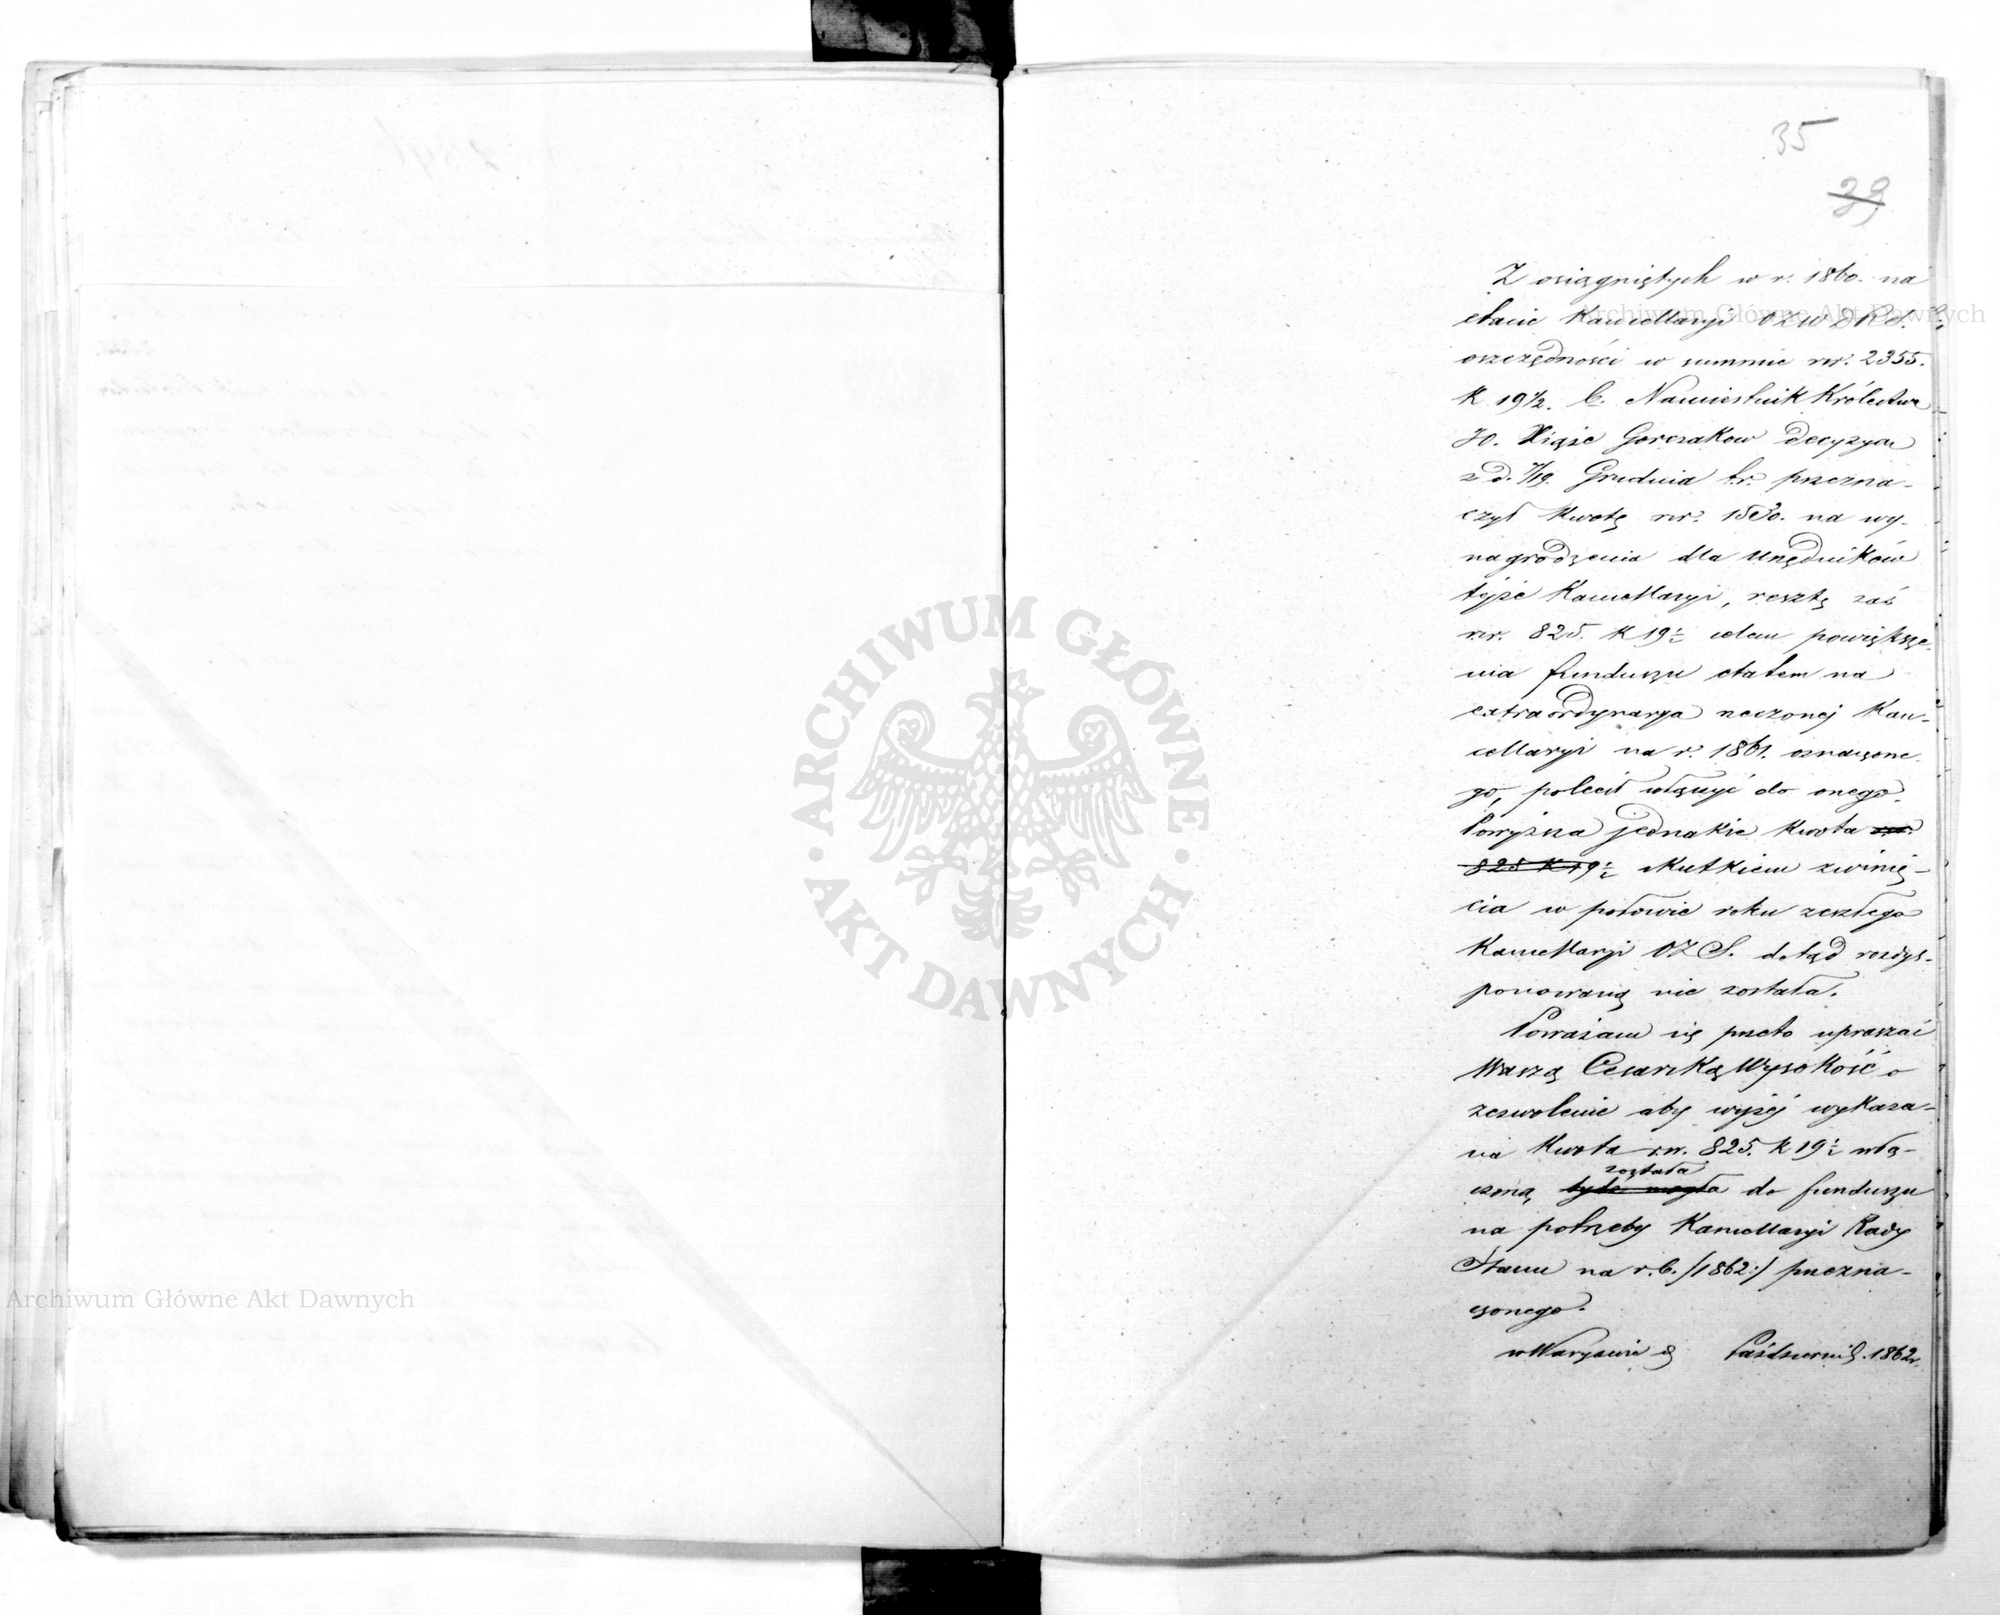 35
39
Z osiągniętych w r. 1860. na
etacie Kancellaryi OZWDRS.
oszczędności w summie rsr. 2355.
k 19 1/2. b. Namiestnik Królestwa
JO. Xiąże Gorczakow decyzyą
z d. 7/19. Grudnia t.r. przezna-
czył kwotę rsr. 1530. na wy-
nagrodzenia dla urzędników
téjże Kancellaryi, resztę zaś
rsr. 825. k 19 1/2 celem powiększe-
nia funduszu etatem na
extraordynarya rzeczonej Kan-
cellaryi na r. 1861. oznaczone-
go, polecił włączyć do onego.
Powyższa jednakże kwota rsr.
825 k 19 1/2 skutkiem zwinię-
cia w połowie roku zeszłego
Kancellaryi OZS. dotąd rozdys-
ponowaną nie została.
Poważam się przeto upraszać
Waszą Cesarską Wysokość o
zezwolenie aby wyżéj wykaza-
na kwota rsr. 825. k 19 1/2 włą-
została
czoną być mogła do funduszu
na potrzeby Kancellaryi Rady
Stanu na r.b. /1862:/ przezna-
czonego.
w Warszawie d Październik. 1862r.
ARCHIWUM GŁÓWNE
AKT DAWNYCH
Archiwum Główne Akt Dawnych
Archiwum Główne Akt Dawnych